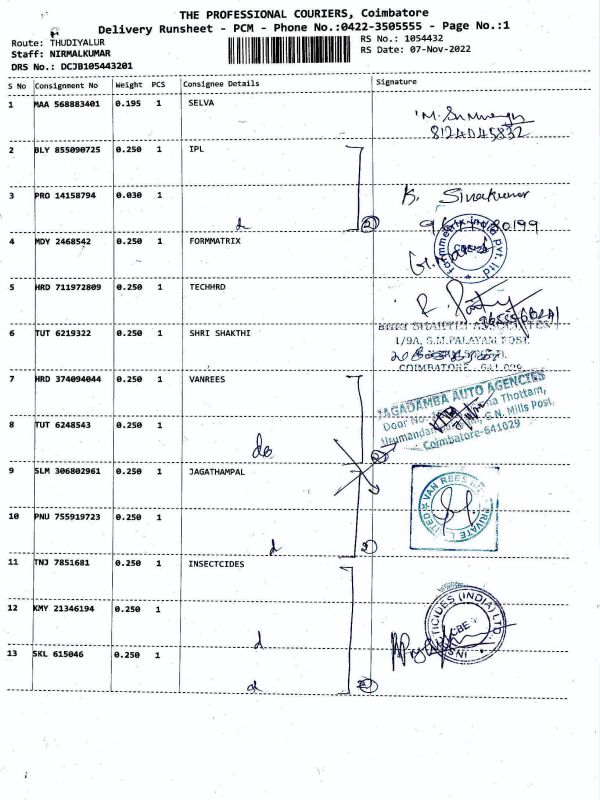 THE PROFESSIONAL COURIERS, Coimbatore
Delivery Runsheet - PCM - Phone No.:0422-3505555 - Page No.:1
Route: THUDIYALUR RS No.: 1054432
Staff: NIRMALKUMAR RS Date: 07-Nov-2022
DRS No.: DCJB105443201
S No Consignment No Weight PCS Consignee Details Signature
1 MAA 568883401 0.195 1 SELVA
2 BLY 855090725 0.250 1 IPL
3 PRO 14158794 0.030 1
d 2
4 MDY 2468542 0.250 1 FORMMATRIX
5 HRD 711972809 0.250 1 TECHHRD
6 TUT 6219322 0.250 1 SHRI SHAKTHI
1/9A, S.M.PALAYAM POST,
COIMBATORE
7 HRD 374094044 0.250 1 VANREES
JAGADAMBA AUTO AGENCIES
Door No. Thottam,
G.N. Mills Post,
Coimbatore-641029
8 TUT 6248543 0.250 1
do
9 SLM 306802961 0.250 1 JAGATHAMPAL
VAN REES PRIVATE
10 PNU 755919723 0.250 1
d 2
11 TNJ 7851681 0.250 1 INSECTCIDES
12 KMY 21346194 0.250 1
d
(INDIA) LTD.
CBE
13 SKL 615046 0.250 1
d